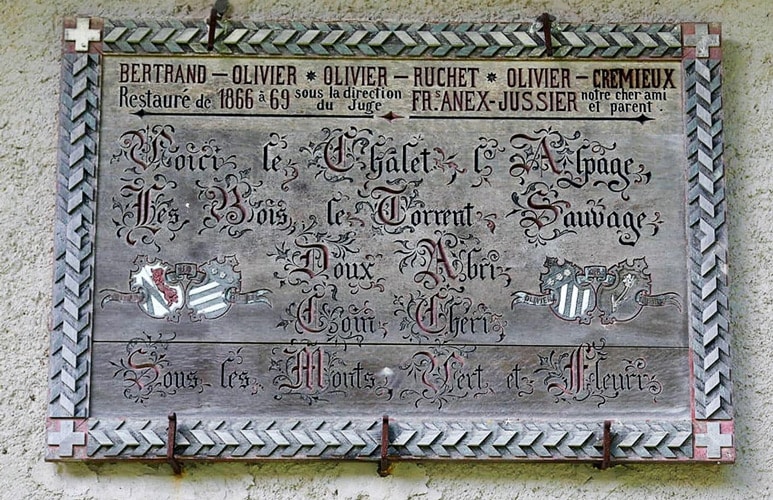 BERTRAND – OLIVIER * OLIVIER – RUCHET * OLIVIER – CREMIEUX
Restauré de 1866 à 69 sous la direction du Juge FR.s ANEX-JUSSIER notre cher ami et parent.
Voici le Châlet, l'Alpage,
Les Bois, le Torrent Sauvage,
Doux Abri,
Coin Chéri,
Sous les Monts Vert et Fleuri,
OLIVIER